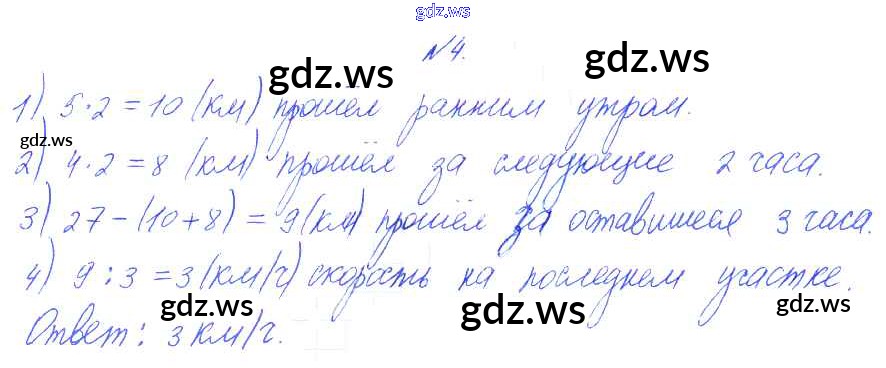 gdz.ws
№4.
gdz.ws
gdz.ws
1) 5·2=10 (км) прошёл ранним утром.
gdz.ws
2) 4·2=8 (км) прошёл за следующие 2 часа.
3) 27-(10+8)=9(км) прошёл за оставшиеся 3 часа.
4) 9:3=3(км/ч) скорость на последнем участке.
gdz.ws
gdz.ws
gdz.ws
Ответ: 3 км/ч.